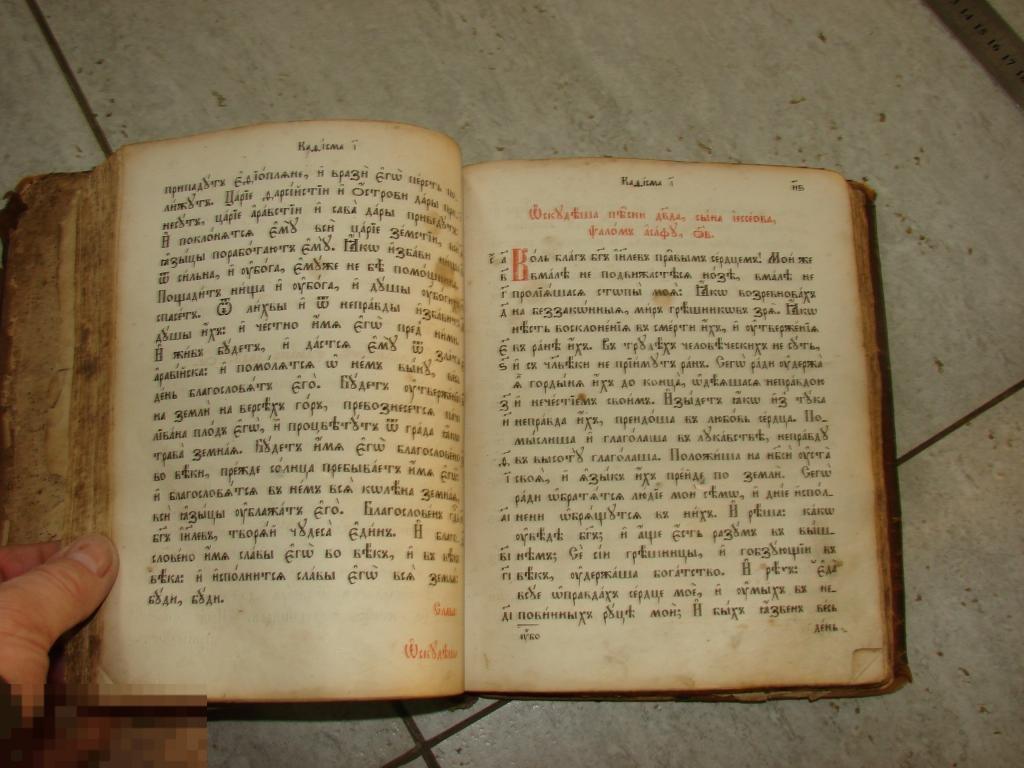 Каѳі́сма і҃
припадутъ Е҆ѳїо́плѧне, и҆ врази̂ Е҆гѡ̀ пе́рсть по
ли́жутъ. Ца́рїе ѳарсі́йстїи и҆ О҆́строви да́ры при
несу́тъ, ца́рїе а҆ра́встїи и҆ сава̀ да́ры приведу́тъ.
И҆ покло́нѧтсѧ Е҆му̀ всѝ ца́рїе зе́мстїи,
ꙗ҆зы́цы порабо́таютъ Е҆му̀. Ꙗ҆́кѡ и҆зба́ви ни́ща
ѿ си́льна, и҆ ᲂу҆бо́га, Е҆му́же не бѣ̀ помо́щника.
Пощади́тъ ни́ща и҆ ᲂу҆бо́га, и҆ ду́шы ᲂу҆бо́гих
спасе́тъ. Ѿ ли́хвы и҆ ѿ непра́вды и҆зба́витъ
ду́шы и҆́хъ: и҆ че́стно и҆́мѧ Е҆гѡ̀ пред ни́ми.
И҆ жи́въ бу́детъ, и҆ да́стсѧ Е҆му̀ ѿ зла́та
а҆раві́йска: и҆ помо́лѧтсѧ ѡ҆ не́мъ вы́ну, весь
де́нь благословѧ́тъ Е҆го̀. Бу́детъ ᲂу҆твержде́нїе
на землѝ на версѣ́хъ го́ръ, превознесе́тсѧ па́че
лїва́на пло́дъ Е҆гѡ̀, и҆ процвѣту́тъ ѿ гра́да ꙗ҆́кѡ
трава̀ земна́ѧ. Бу́детъ и҆́мѧ Е҆гѡ̀ благослове́но
во вѣ́ки, пре́жде со́лнца пребыва́етъ и҆́мѧ Е҆гѡ̀:
и҆ благословѧ́тсѧ въ не́мъ всѧ̂ кѡлѣ́на земна́ѧ,
всѝ ꙗ҆зы́цы ᲂу҆блажа́тъ Е҆го̀. Благослове́нъ гд҇ь
бг҃ъ і҆и҃левъ, творѧ́й чудеса̀ Е҆ди́нъ. И҆ благо
слове́но и҆́мѧ сла́вы Е҆гѡ̀ во вѣ́къ, и҆ въ вѣ́къ
вѣ́ка: и҆ и҆спо́лнитсѧ сла́вы Е҆гѡ̀ всѧ̀ землѧ̀:
бу́ди, бу́ди.
Сла́ва:
Ѡ҆скудѣ́ша
Каѳі́сма і҃ н҃в
Ѡ҆скудѣ́ша пѣ́сни дв҃да, сы́на і҆ессе́ова,
ѱало́мъ а҆са́фу, о҃в.
а҃ Ко́ль бла́гъ бг҃ъ і҆и҃левъ пра́вымъ се́рдцемъ! Мои́ же
в҃ вма́лѣ не подви́жастѣсѧ но́зѣ, вма́лѣ не
г҃ пролїѧ́шасѧ стѡпы̀ моѧ̂: Ꙗ҆́кѡ возревнова́хъ
д҃ на беззако́нныѧ, ми́ръ грѣ́шникѡвъ зрѧ̀. Ꙗ҆́кѡ
нѣ́сть восклоне́нїѧ въ сме́рти и҆́хъ, и҆ ᲂу҆твержде́нїѧ
є҃ въ ра́нѣ и҆́хъ. Въ трудѣ́хъ человѣ́ческихъ не су́ть,
ѕ҃ и҆ съ чл҃вѣ́ки не прїи́мутъ ра́нъ. Сегѡ̀ ра́ди ᲂу҆держа̀
ѧ҆̀ горды́нѧ и҆́хъ до конца̀, ѡ҆дѣ́ѧшасѧ непра́вдою
з҃ и҆ нече́стїемъ свои́мъ. И҆зы́детъ ꙗ҆́кѡ и҆з̾ ту́ка
и҃ непра́вда и҆́хъ, преидо́ша въ любо́вь се́рдца. По-
мы́слиша и҆ глаго́лаша въ лука́вствѣ, непра́вду
ѳ҃ въ высоту̀ глаго́лаша. Положи́ша на нб҃сѝ ᲂу҆ста̀
і҃ своѧ̂, и҆ ѧ҆зы́къ и҆́хъ пре́йде по землѝ. Сегѡ̀
ра́ди ѡ҆братѧ́тсѧ лю́дїе моѝ сѣ́мѡ, и҆ дні́е и҆спол-
а҃і не́ни ѡ҆брѧ́щутсѧ въ ни́хъ. И҆ рѣ́ша: ка́кѡ
ᲂу҆вѣ́дѣ бг҃ъ; и҆ а҆́ще є҆́сть ра́зумъ въ вы́ш-
в҃і нѣмъ; Се̂ сі́и грѣ́шницы, и҆ гобзу́ющїи въ
г҃і вѣ́къ, ᲂу҆держа́ша бога́тство. И҆ рѣ́хъ: є҆да̀
всу́е ѡ҆правда́хъ се́рдце моѐ, и҆ ᲂу҆мы́хъ въ не-
д҃і пови́нныхъ ру́цѣ моѝ; И҆ бы́хъ ꙗ҆́звенъ ве́сь
ᲂу҆́бо де́нь